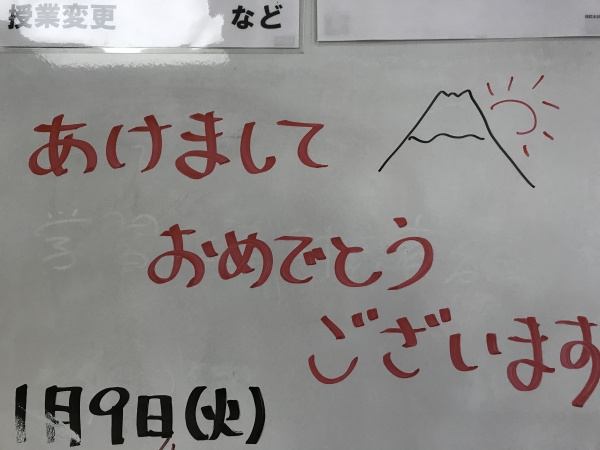 授業変更
など
あけまして
おめでとう
ございます
1月9日(火)